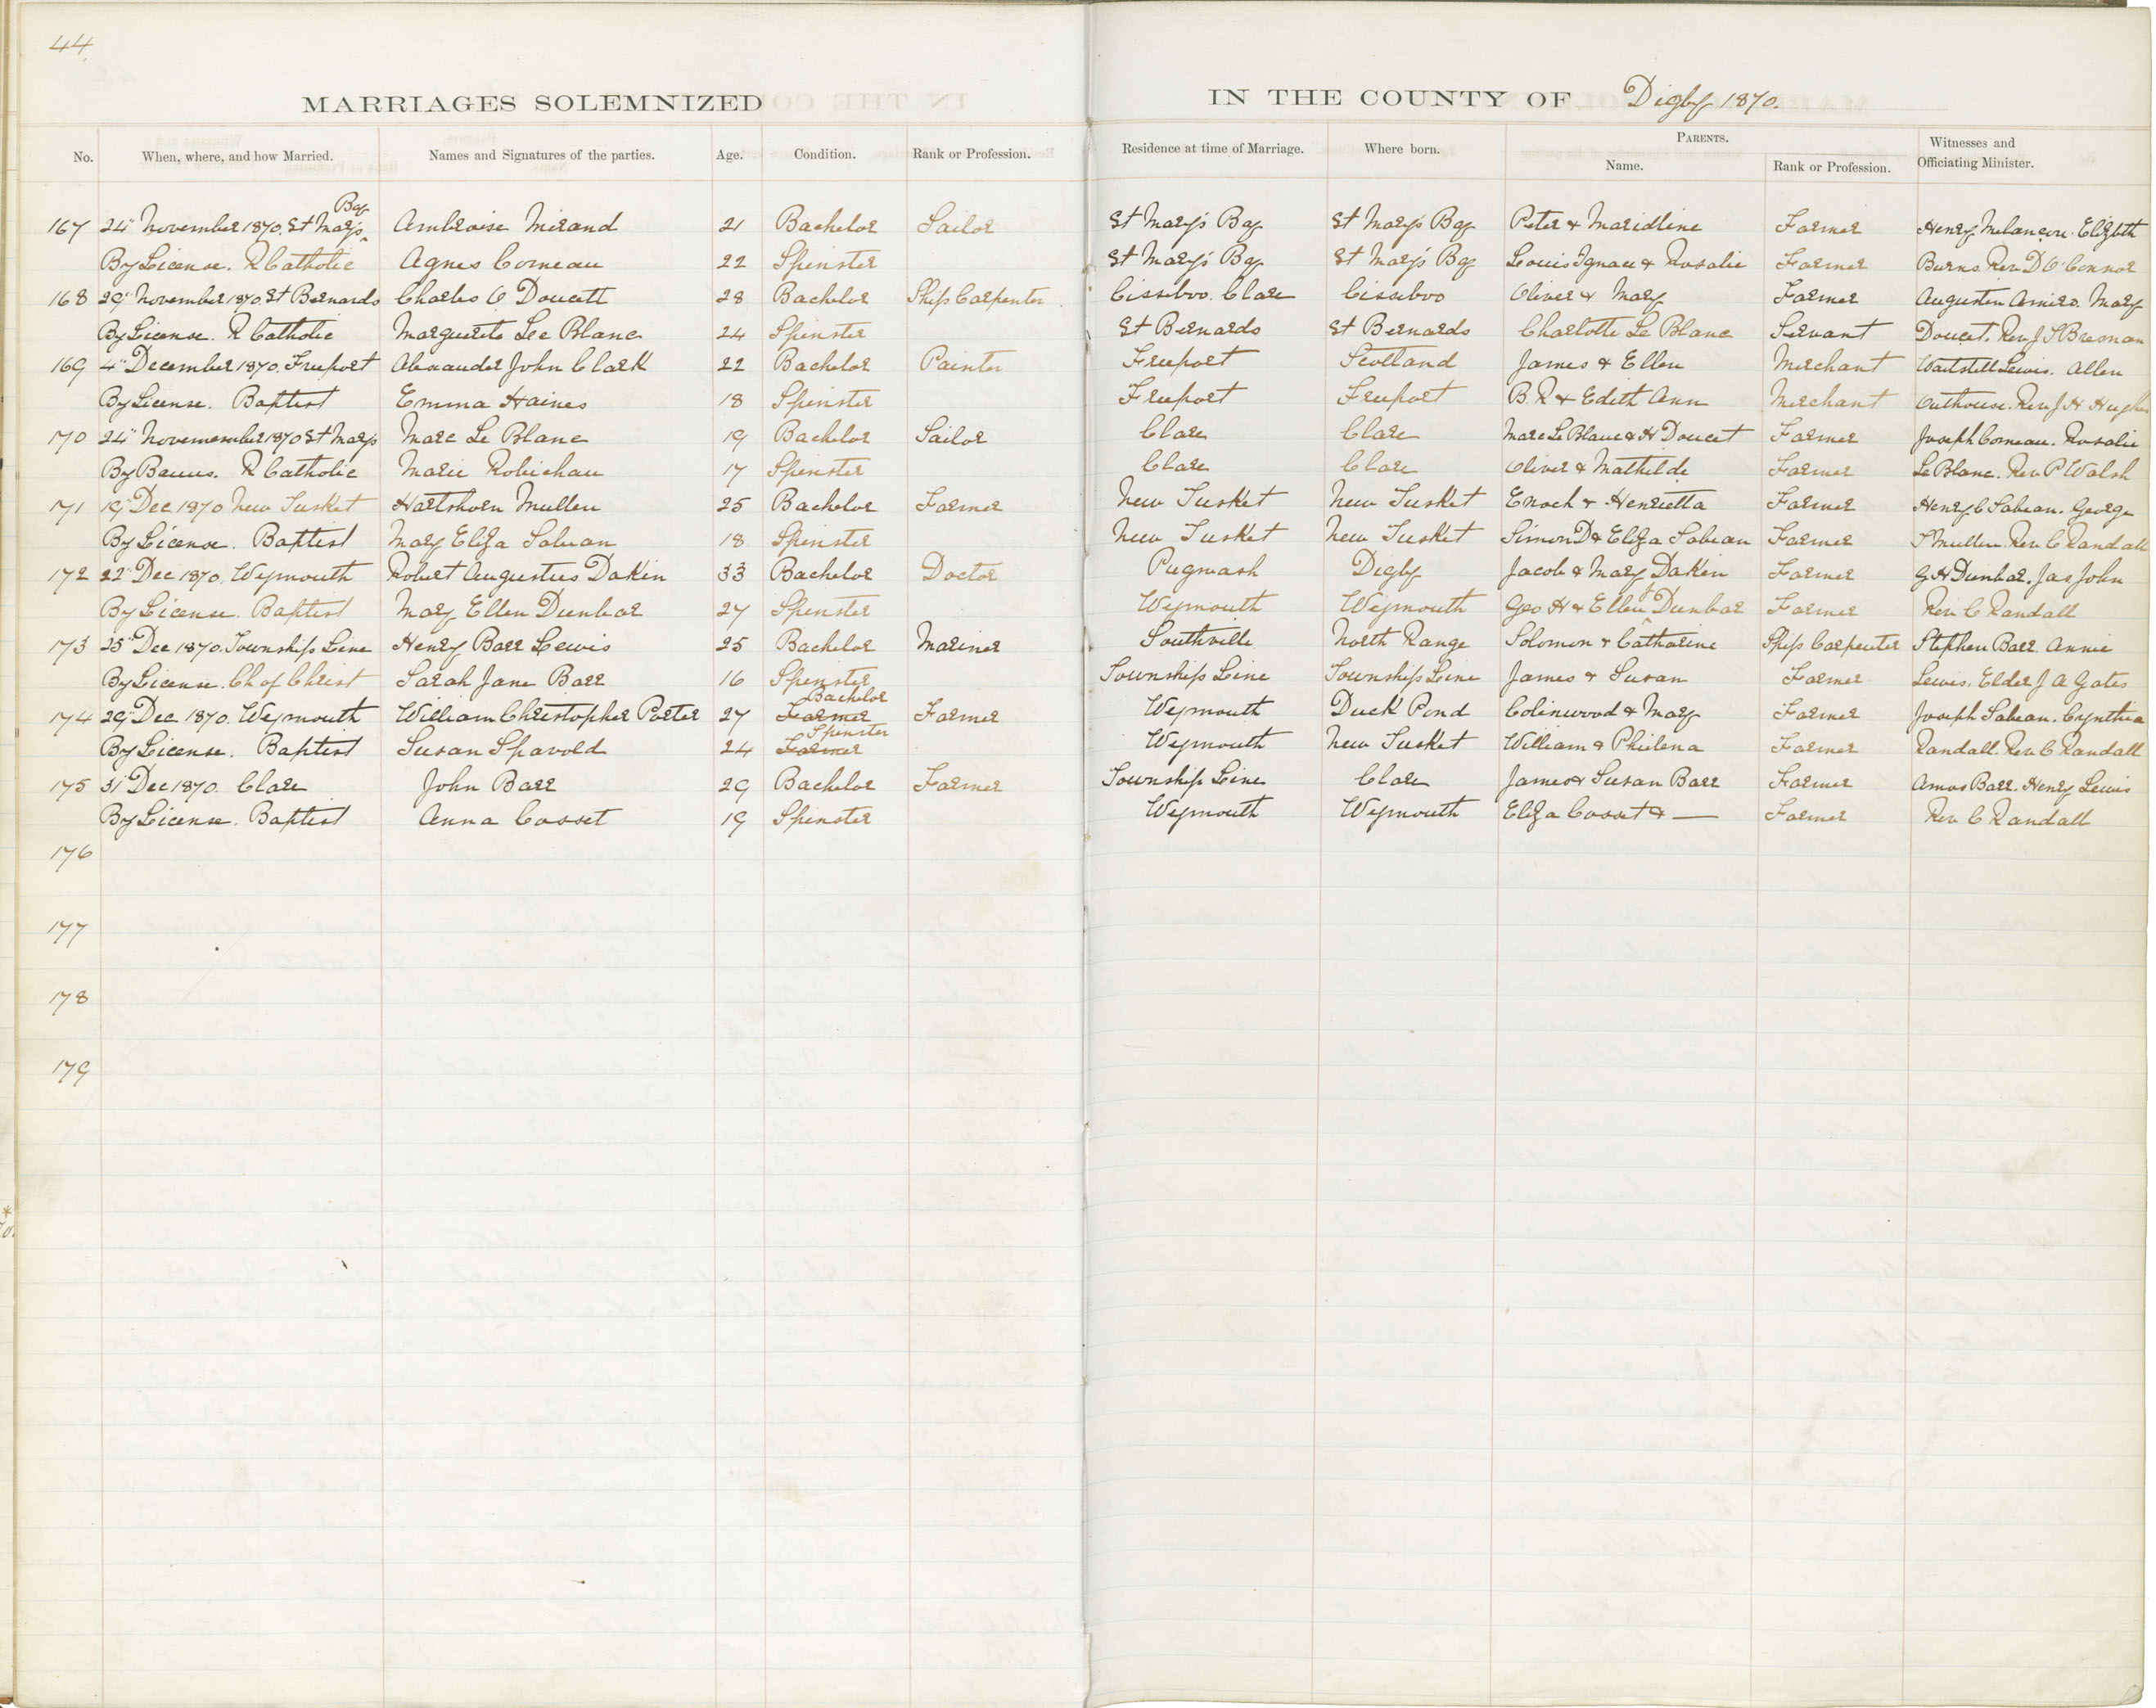 44.
MARRIAGES SOLEMNIZED IN THE COUNTY OF Digby 1870.
No. When, where, and how Married. Names and Signatures of the parties. Age. Condition. Rank or Profession. Residence at time of Marriage. Where born. PARENTS. Name. Rank or Profession. Witnesses and Officiating Minister.
Bay
167 24" November 1870. St Mary's Ambroise Mirand 21 Bachelor Sailor St Mary's Bay St Mary's Bay Peter & Maridline Farmer Henry Melancon. Elizbth
By License. R Catholic Agnes Comeau 22 Spinster St Mary's Bay St Mary's Bay Louis Ignace & Rosalie Farmer Burns. Rev D O'Connor
168 29" November 1870. St Bernards Charles O Doucett 28 Bachelor Ship Carpenter Cissiboo. Clare Cissiboo Oliver & Mary Farmer Augustin Amiro. Mary
By License. R Catholic Marguerite Lee Blanc 24 Spinster St Bernards St Bernards Charlotte Le Blanc Servant Doucet. Rev J S Bresnan
169 4" December 1870. Freeport Alexander John Clark 22 Bachelor Painter Freeport Scotland James & Ellen Merchant Waitstill Lewis. Allen
By License. Baptist Emma Haines 18 Spinster Freeport Freeport B. R & Edith Ann Merchant Outhouse. Rev J H Hughes
170 24" Novemember 1870 St Marys Marc Le Blanc 19 Bachelor Sailor Clare Clare Marc Le Blanc & H Doucet Farmer Joseph Comeau. Rosalie
By Banns. R Catholic Marie Robichau 17 Spinster Clare Clare Oliver & Mathilde Farmer Le Blanc. Rev P Walsh
171 19" Dec 1870 New Tusket Hartshorn Mullen 25 Bachelor Farmer New Tusket New Tusket Enoch & Henrietta Farmer Henry C Sabean. George
By License. Baptist Mary Eliza Sabean 18 Spinster New Tusket New Tusket Simon D & Eliza Sabean Farmer S Mullen. Rev C Randall
172 22" Dec 1870. Weymouth Robert Augustus Dakin 33 Bachelor Doctor Pugwash Digby Jacob & Mary Dakin Farmer G H Dunbar. Jas John
By License. Baptist Mary Ellen Dunbar 27 Spinster Weymouth Weymouth Geo H & Ellen Dunbar Farmer Rev C Randall
173 25" Dec 1870. Township Line Henry Barr Lewis 25 Bachelor Mariner Southville North Range Solomon & Catharine Ship Carpenter Stephen Barr. Annie
By License. Ch of Christ Sarah Jane Barr 16 Spinster Township Line Township Line James & Susan Farmer Lewis. Elder J A Gates
Bachelor
174 29" Dec 1870. Weymouth William Christopher Porter 27 Farmer Farmer Weymouth Duck Pond Colinwood & Mary Farmer Joseph Sabean. Cynthia
Spinster
By License. Baptist Susan Spavold 24 Farmer Weymouth New Tusket William & Philena Farmer Randall. Rev C Randall
175 31" Dec 1870. Clare John Barr 29 Bachelor Farmer Township Line Clare James & Susan Barr Farmer Amos Barr. Henry Lewis
By License. Baptist Anna Cosset 19 Spinster Weymouth Weymouth Eliza Cosset & — Farmer Rev C Randall
176
177
178
179